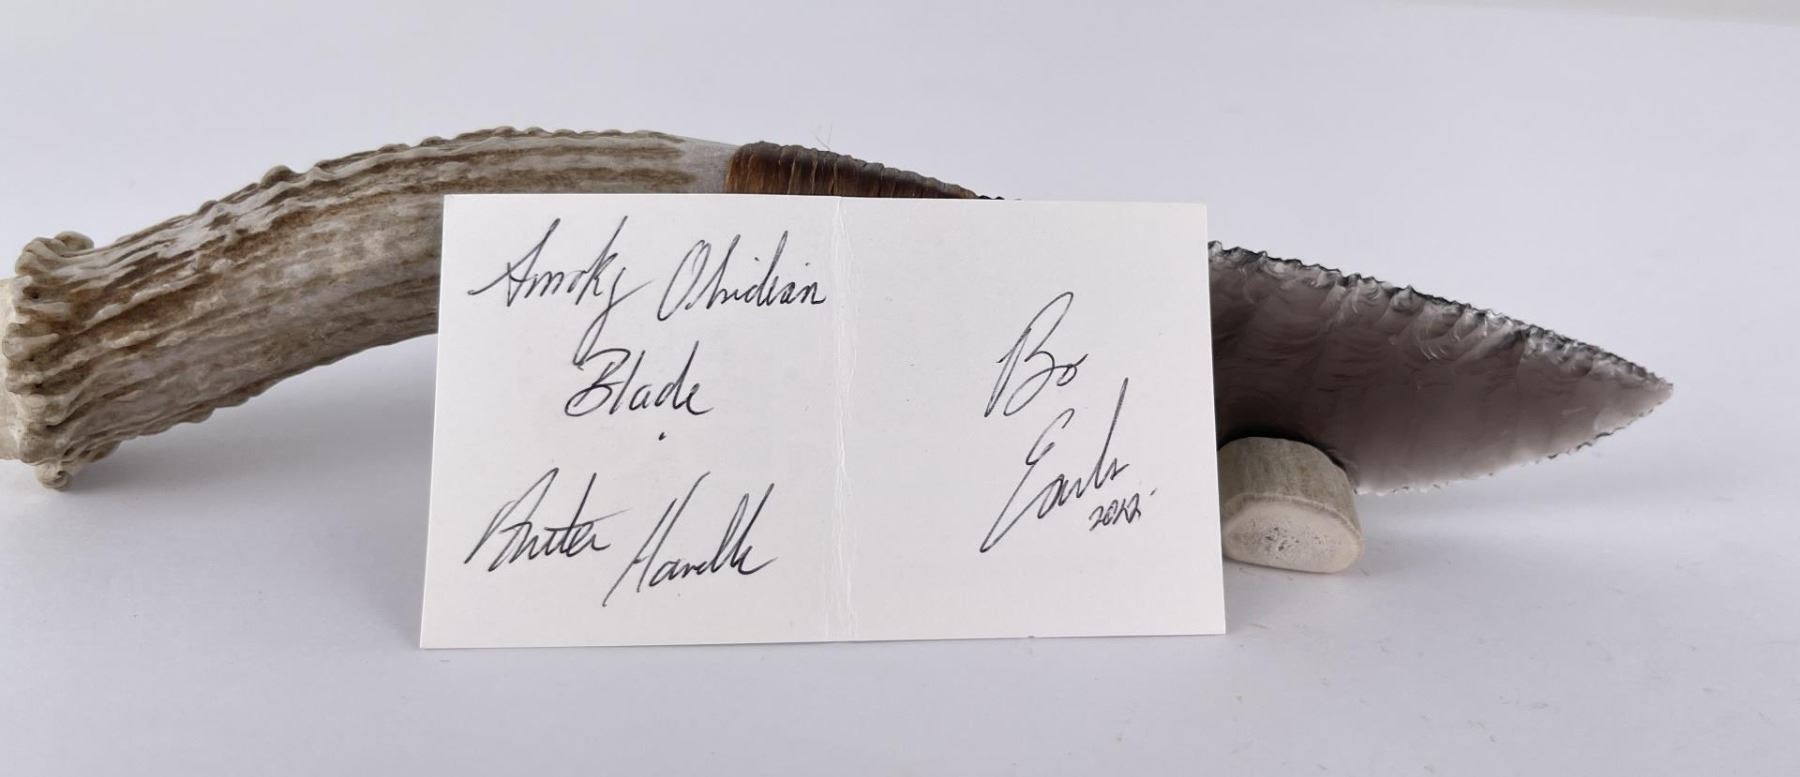 Smoky Obsidian
Blade
Antler Handle
Bo
Earls
2022